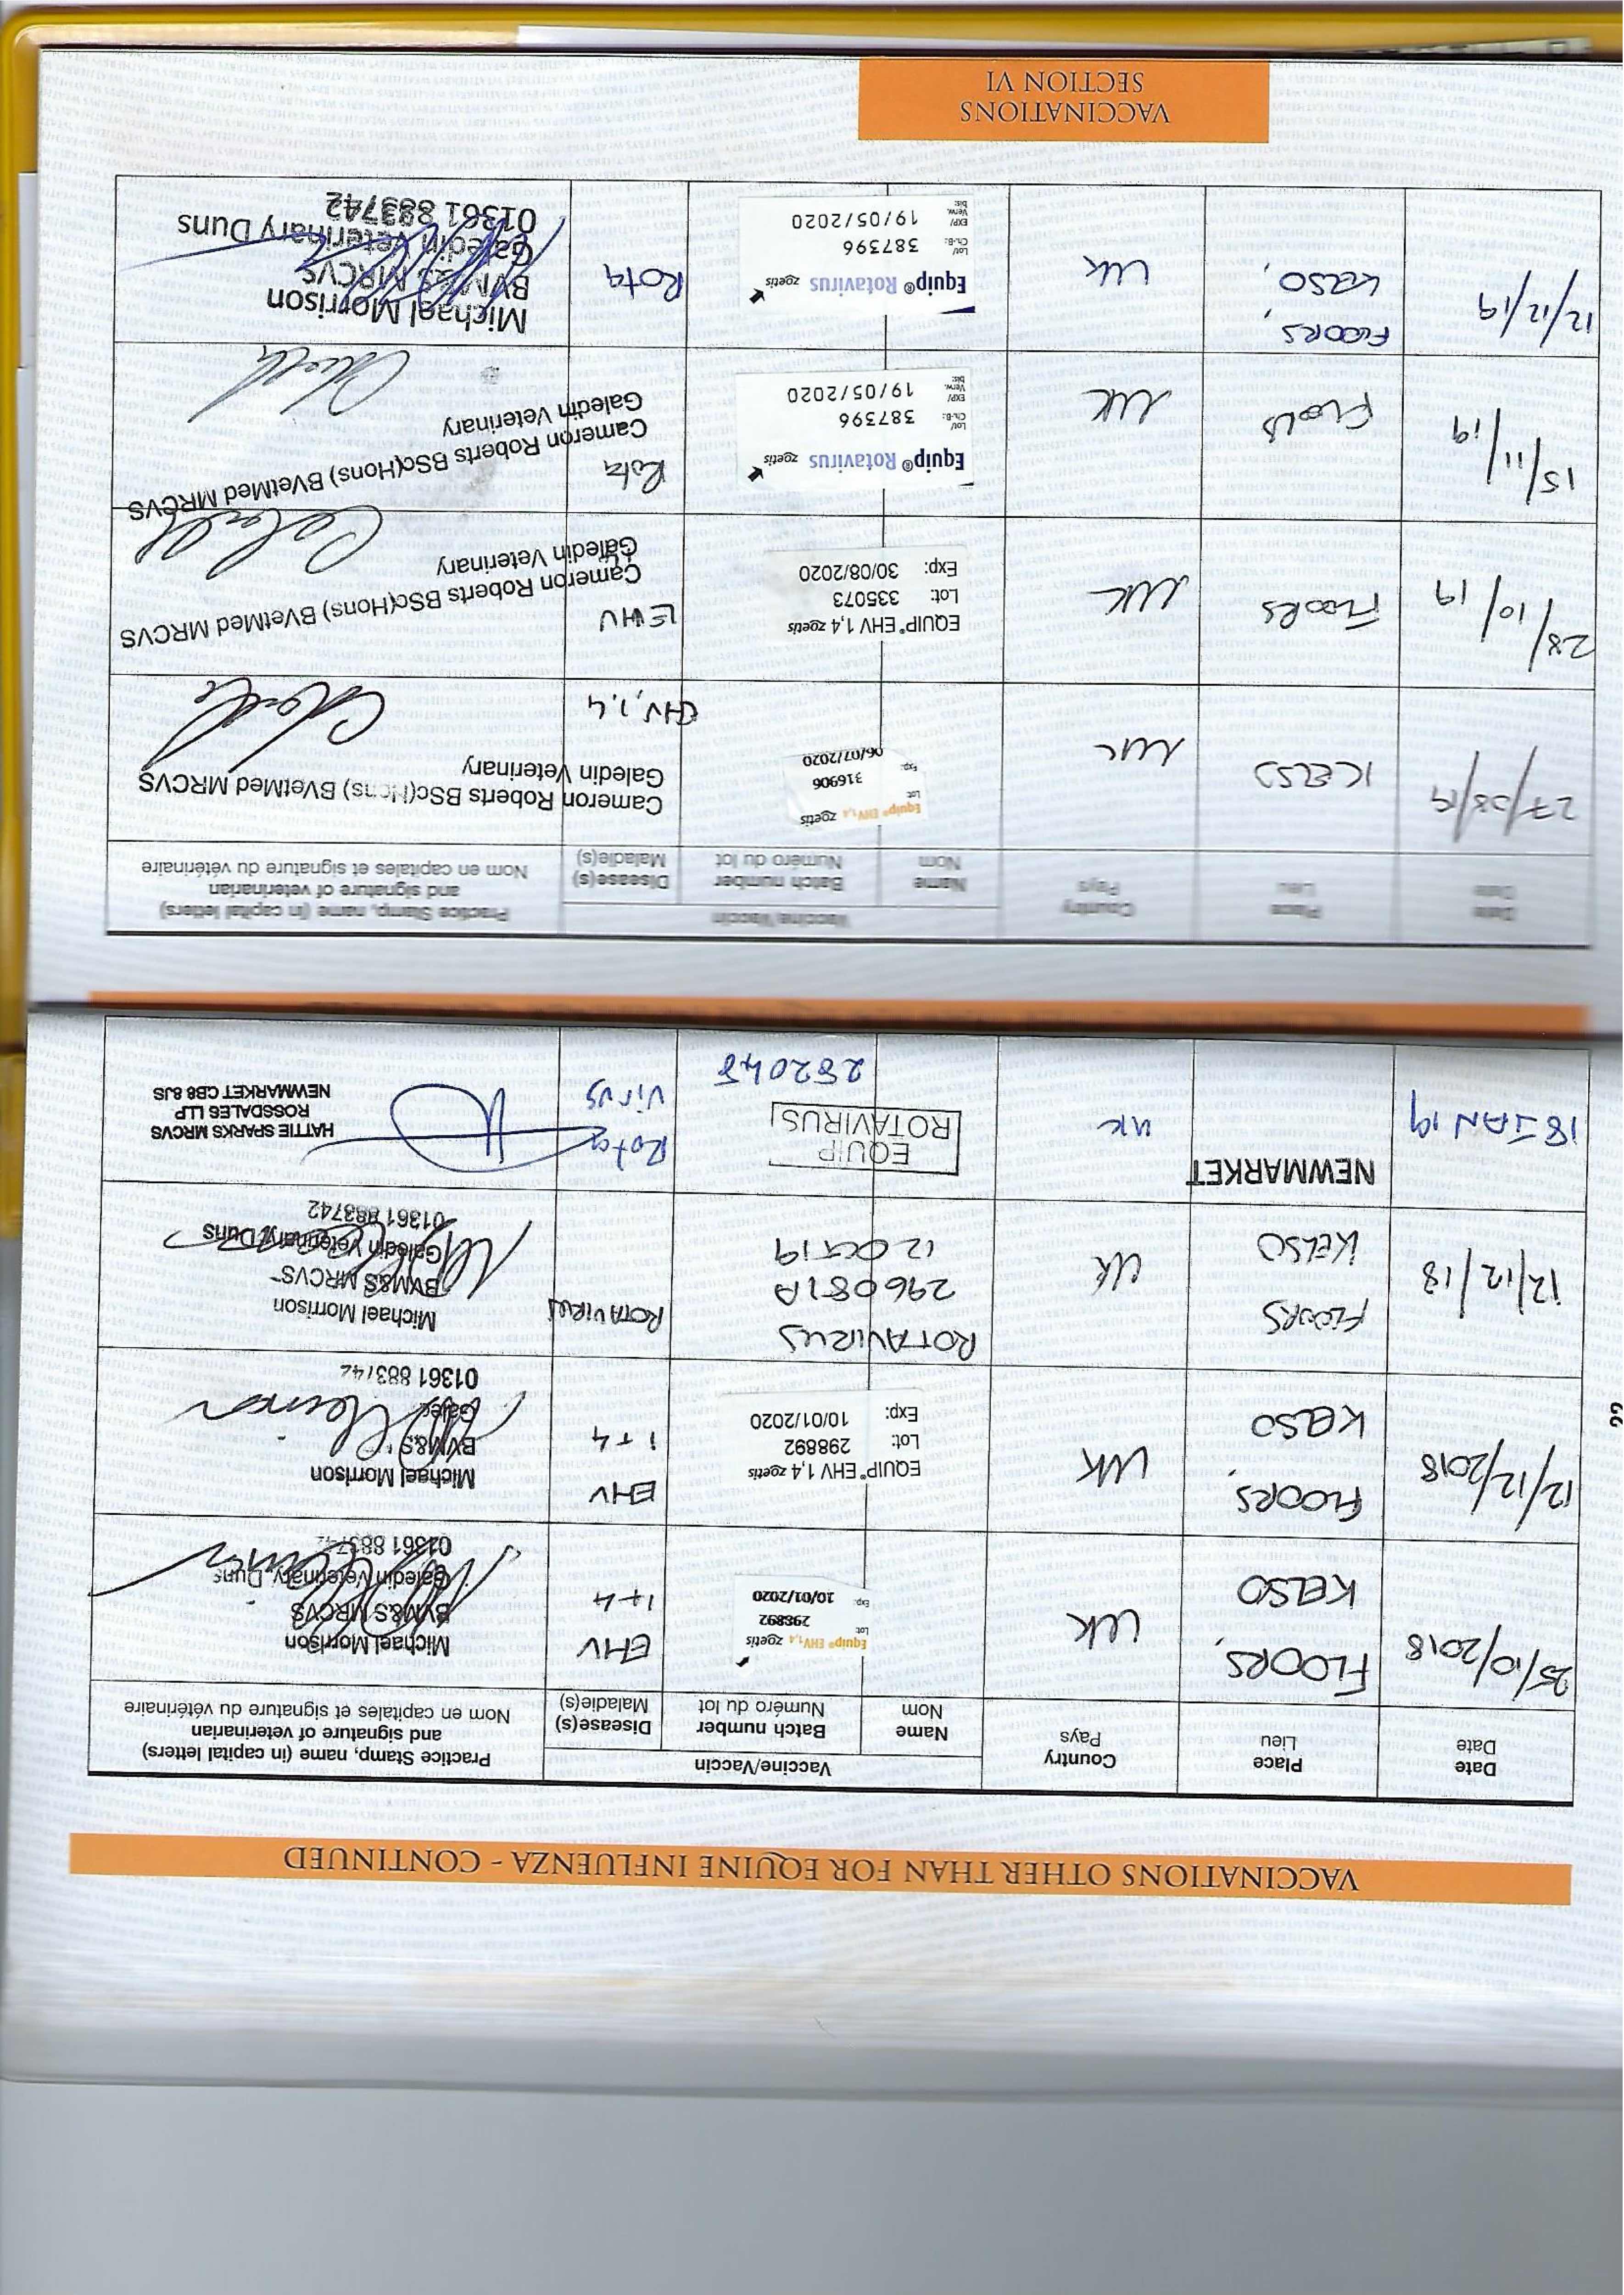 VACCINATIONS OTHER THAN FOR EQUINE INFLUENZA - CONTINUED
Date
Date
Place
Lieu
Country
Pays
Vaccine/Vaccin
Name
Nom
Batch number
Numéro du lot
Disease(s)
Maladie(s)
Practice Stamp, name (in capital letters)
and signature of veterinarian
Nom en capitales et signature du vétérinaire
25/10/2018
FLOORS,
KELSO
UK
Equip® EHV1,4 zoetis
Lot 298892
Exp: 10/01/2020
EHV
1+4
Michael Morrison
BVM&S MRCVS
Galedin Veterinary Duns
01361 883742
12/12/2018
FLOORS,
KELSO
UK
EQUIP® EHV 1,4 zoetis
Lot: 298892
Exp: 10/01/2020
EHV
1+4
Michael Morrison
BVM&S
01361 883742
12/12/18
FLOORS
KELSO
UK
ROTAVIRUS
296081A
12 OCT 19
ROTAVIRUS
Michael Morrison
BVM&S MRCVS
Galedin Veterinary Duns
01361 883742
18 JAN 19
NEWMARKET
UK
EQUIP
ROTAVIRUS
282048
Rota
Virus
HATTIE SPARKS MRCVS
ROSSDALES LLP
NEWMARKET CB8 8JS
Date
Date
Place
Lieu
Country
Pays
Vaccine/Vaccin
Name
Nom
Batch number
Numéro du lot
Disease(s)
Maladie(s)
Practice Stamp, name (in capital letters)
and signature of veterinarian
Nom en capitales et signature du vétérinaire
27/08/19
KELSO
UK
Equip® EHV1,4 zoetis
Lot 316906
Exp: 06/07/2020
EHV 1,4
Cameron Roberts BSc(Hons) BVetMed MRCVS
Galedin Veterinary
28/10/19
FLOORS
UK
EQUIP® EHV 1,4 zoetis
Lot: 335073
Exp: 30/08/2020
EHV
Cameron Roberts BSc(Hons) BVetMed MRCVS
Galedin Veterinary
15/11/19
Floors
UK
Equip® Rotavirus zoetis
Lot/
Ch.-B.: 387396
EXP/
Verw.
bis: 19/05/2020
Rota
Cameron Roberts BSc(Hons) BVetMed MRCVS
Galedin Veterinary
12/12/19
FLOORS,
KELSO,
UK
Equip® Rotavirus zoetis
Lot/
Ch.-B.: 387396
EXP/
Verw.
bis: 19/05/2020
Rota
Michael Morrison
BVM&S MRCVS
Galedin Veterinary Duns
01361 883742
VACCINATIONS
SECTION VI